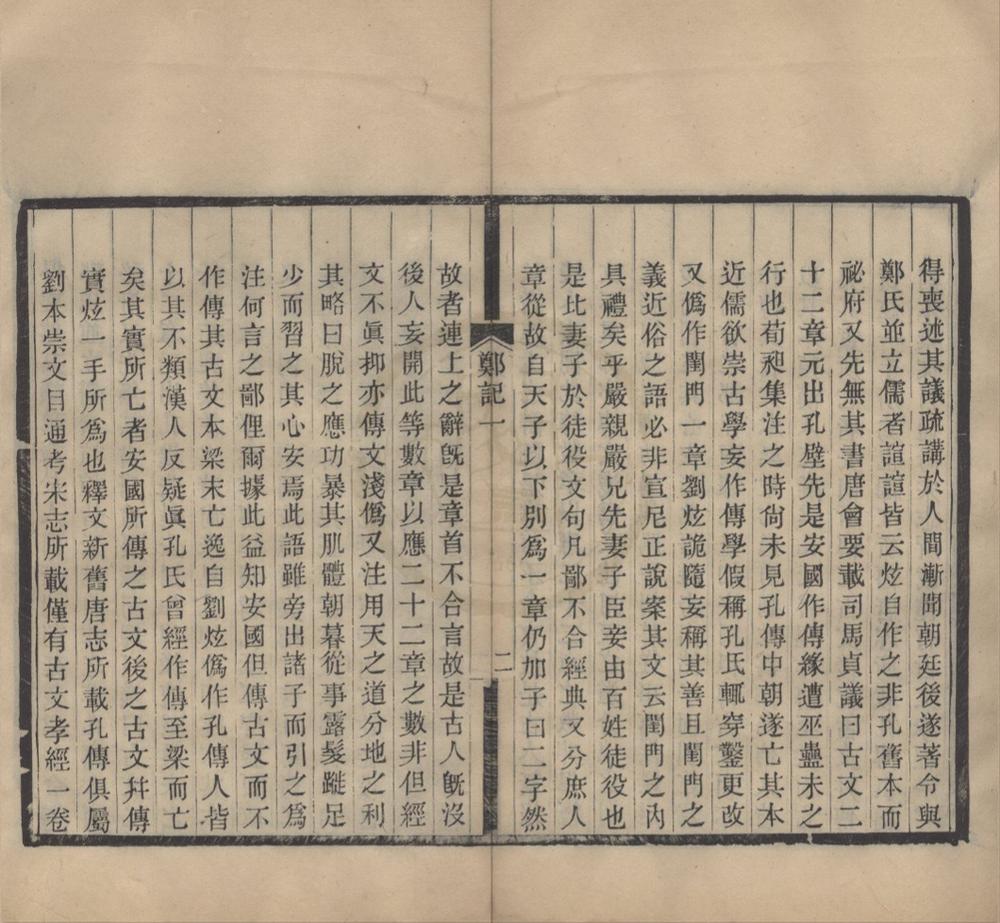 得喪述其議疏講於人間漸聞朝廷後遂著令與
鄭氏並立儒者諠諠皆云炫自作之非孔舊本而
祕府又先無其書唐會要載司馬貞議曰古文二
十二章元出孔壁先是安國作傳緣遭巫蠱未之
行也荀昶集注之時尚未見孔傳中朝遂亡其本
近儒欲崇古學妄作傳學假稱孔氏輒穿鑿更改
又僞作閨門一章劉炫詭隨妄稱其善且閨門之
義近俗之語必非宣尼正說案其文云閨門之內
具禮矣乎嚴親嚴兄先妻子臣妾由百姓徒役也
是比妻子於徒役文句凡鄙不合經典又分庶人
章從故自天子以下別爲一章仍加子曰二字然
鄭記一
二
故者連上之辭旣是章首不合言故是古人旣沒
後人妄開此等數章以應二十二章之數非但經
文不眞抑亦傳文淺僞又注用天之道分地之利
其略曰脫之應功暴其肌體朝暮從事露髮跣足
少而習之其心安焉此語雖旁出諸子而引之爲
注何言之鄙俚爾據此益知安國但傳古文而不
作傳其古文本梁末亡逸自劉炫僞作孔傳人皆
以其不類漢人反疑眞孔氏曾經作傳至梁而亡
矣其實所亡者安國所傳之古文後之古文幷傳
實炫一手所爲也釋文新舊唐志所載孔傳俱屬
劉本崇文目通考宋志所載僅有古文孝經一卷